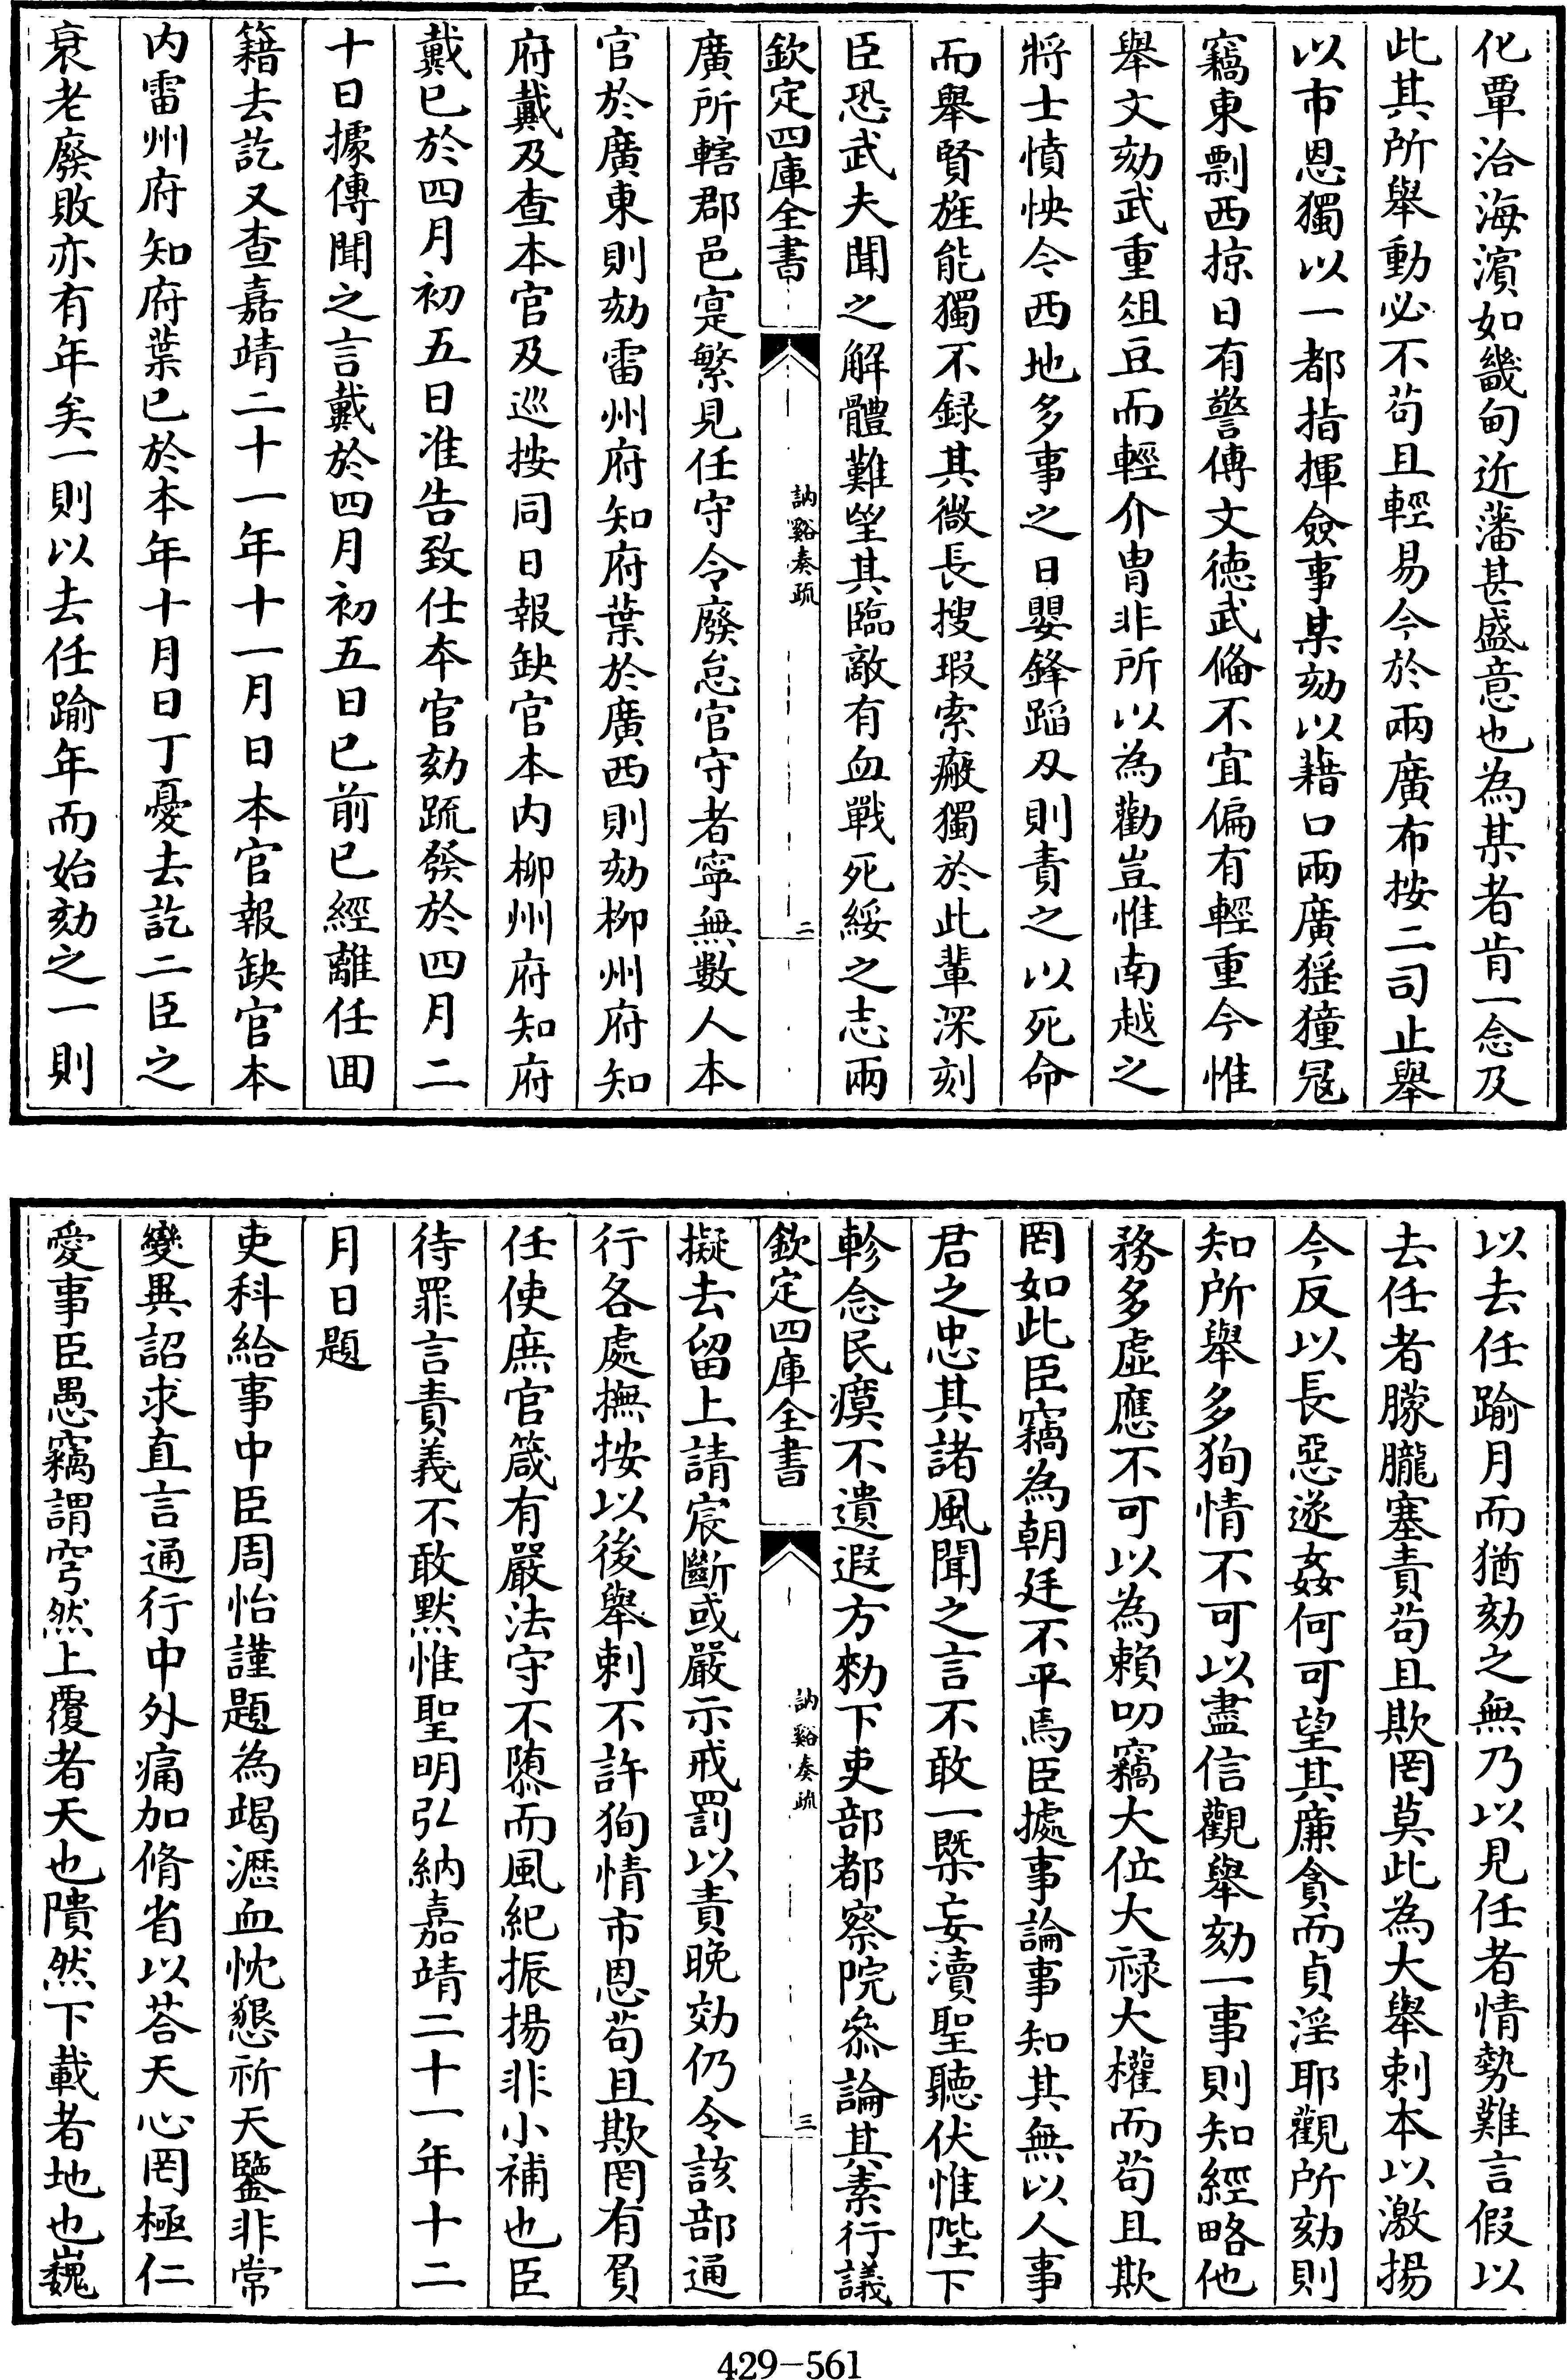 化覃洽海濱如畿甸近藩甚盛意也為某者肯一念及
此其所舉動必不苟且輕易今於兩廣布按二司止舉
以市恩獨以一都指揮僉事某劾以藉口兩廣猺獞冦
竊東剽西掠日有警傳文徳武備不宜偏有輕重今惟
舉文劾武重俎豆而輕介胄非所以為勸豈惟南越之
將士憤怏今西地多事之日嬰鋒蹈刃則責之以死命
而舉賢旌能獨不録其微長搜瑕索瘢獨於此輩深刻
臣恐武夫聞之解體難望其臨敵有血戰死綏之志兩
欽定四庫全書
訥谿奏疏
二
廣所轄郡邑寔繁見任守令廢怠官守者寜無數人本
官於廣東則劾雷州府知府葉於廣西則劾柳州府知
府戴及查本官及巡按同日報缺官本内柳州府知府
戴已於四月初五日准告致仕本官劾疏發於四月二
十日據傳聞之言戴於四月初五日已前已經離任囬
籍去訖又查嘉靖二十一年十一月日本官報缺官本
内雷州府知府葉已於本年十月日丁憂去訖二臣之
衰老廢敗亦有年矣一則以去任踰年而始劾之一則
以去任踰月而猶劾之無乃以見任者情勢難言假以
去任者朦朧塞責苟且欺罔莫此為大舉刺本以激揚
今反以長惡遂姦何可望其亷貪而貞淫耶觀所劾則
知所舉多狥情不可以盡信觀舉劾一事則知經略他
務多虛應不可以為賴叨竊大位大禄大權而苟且欺
罔如此臣竊為朝廷不平焉臣據事論事知其無以人事
君之忠其諸風聞之言不敢一槩妄瀆聖聽伏惟陛下
軫念民瘼不遺遐方勑下吏部都察院叅論其素行議
欽定四庫全書
訥谿奏疏
三
擬去留上請宸斷或嚴示戒罰以責晚効仍令該部通
行各處撫按以後舉刺不許狥情市恩苟且欺罔有負
任使庶官箴有嚴法守不隳而風紀振揚非小補也臣
待罪言責義不敢默惟聖明弘納嘉靖二十一年十二
月日題
吏科給事中臣周怡謹題為竭瀝血忱懇祈天鑒非常
變異詔求直言通行中外痛加脩省以荅天心罔極仁
愛事臣愚竊謂穹然上覆者天也隤然下載者地也巍
429-561